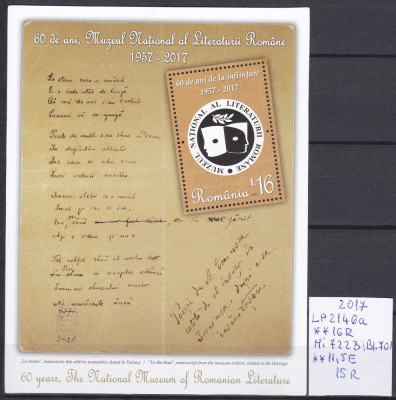 60 de ani, Muzeul Național al Literaturii Române
1957 - 2017
La steaua care-a răsărit
E-o cale-atât de lungă
Că mii de ani i-au trebuit
Luminii să ne-ajungă
Poate de mult s-au stins în drum
În depărtări albastre
Iar raza ei abia acum
Luci vederii noastre
Icoana stelei ce-a murit
Încet pe cer se suie
Era pe când nu s-a zărit
Azi o vedem și nu e
Tot astfel când al nostru dor
Pieri în noaptea adâncă
Lumina stinsului amor
Ne urmărește încă
60 de ani de la înființare
1957 - 2017
MUZEUL NAȚIONAL AL LITERATURII ROMÂNE
România L 16
Poezie de M. Eminescu
"La steaua", manuscris din arhiva muzeului, clasat în Tezaur / "To the Star", manuscript from the museum archive, ranked in the Heritage
60 years, The National Museum of Romanian Literature
2017
LP2146a
**16R
Mi 7223; Bl.701
**11,5E
15R